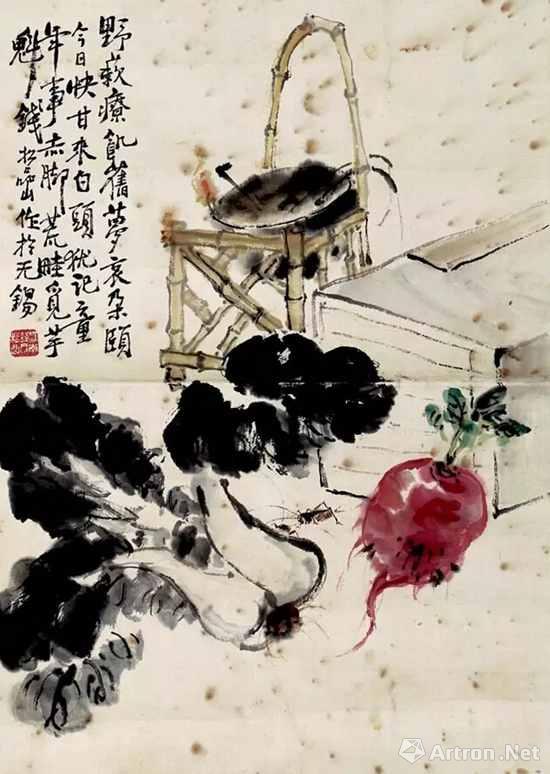 野蔌療飢舊夢哀朵頤
今日快甘來白頭犹记童
年事赤脚荒畦覓芋
魁 錢松嵒作於无錫
Artron.Net